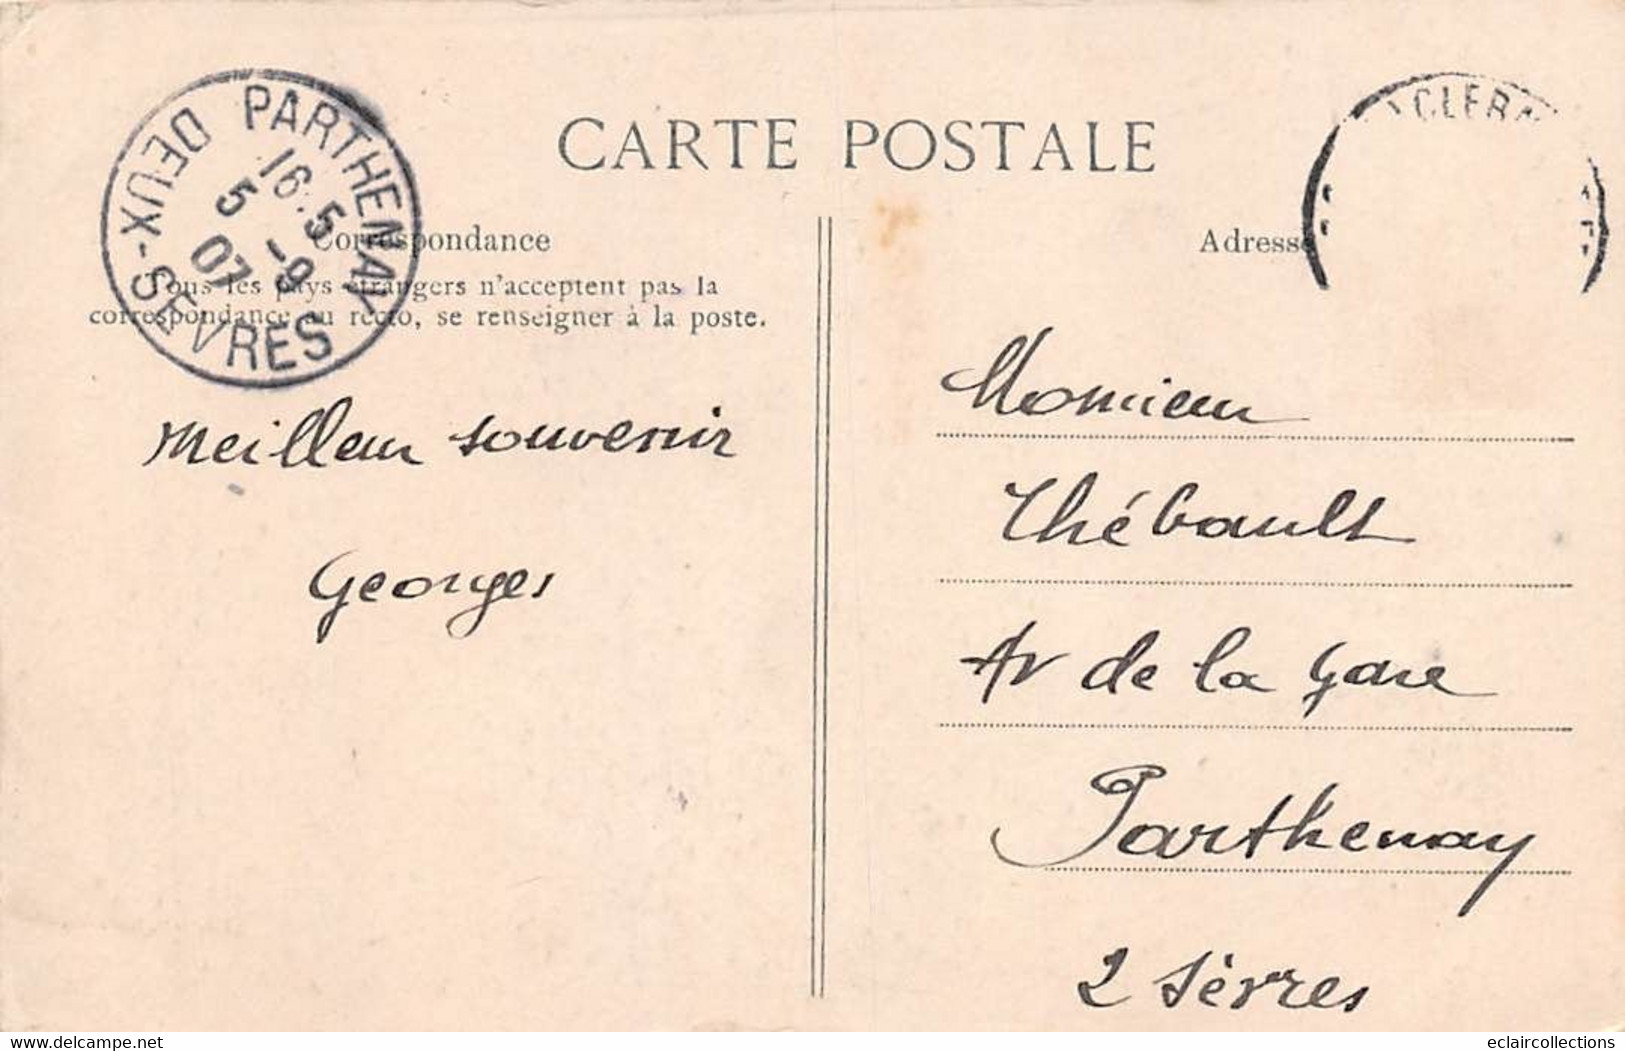 CARTE POSTALE
PARTHENAY
16.5
5 -9
07
DEUX-SEVRES
Correspondance
Tous les pays étrangers n'acceptent pas la
correspondance au recto, se renseigner à la poste.
Meilleur souvenir
Georges
Adresse
Monsieur
Thébault
Av de la Gare
Parthenay
2 Sèvres
delcampe.net
eclaircollections